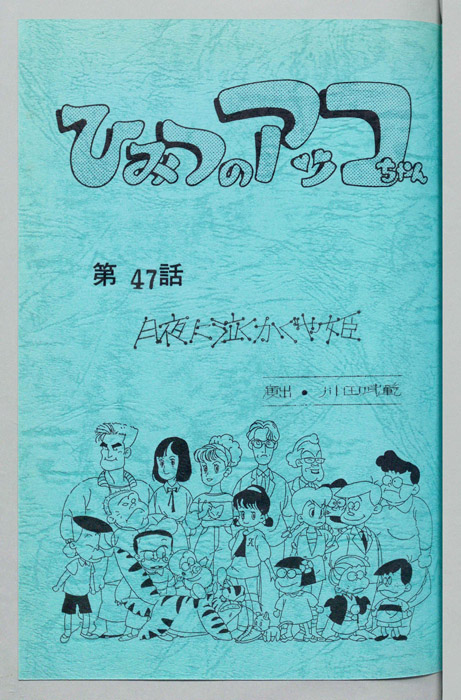 ひみつのアッコちゃん
第47話
月夜に泣くかぐや姫
演出・川田武範